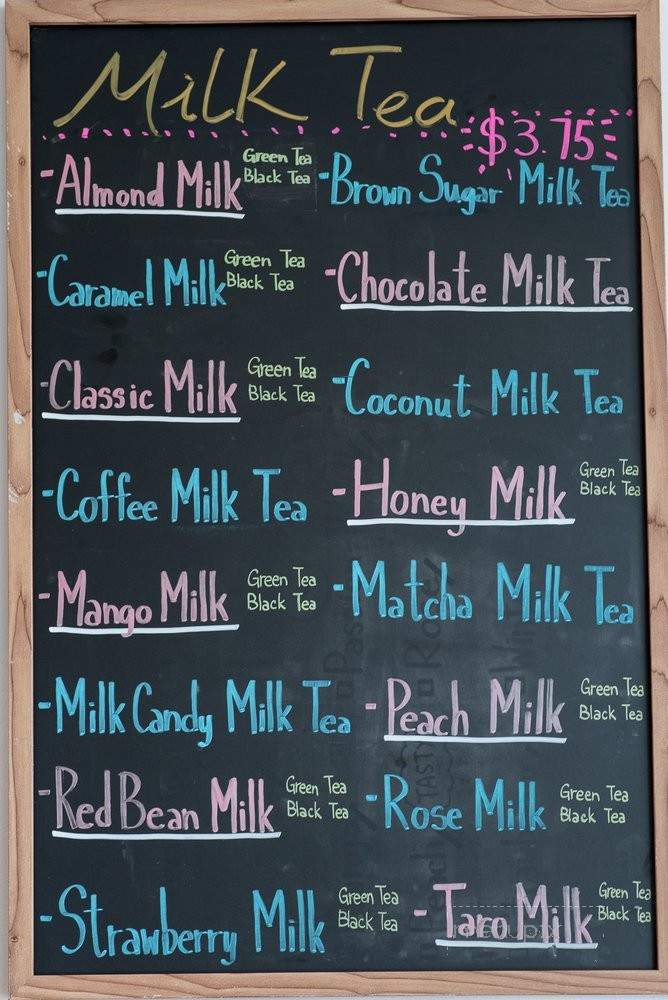 Milk Tea
$3.75
-Almond Milk Green Tea
Black Tea
-Brown Sugar Milk Tea
-Caramel Milk Green Tea
Black Tea
-Chocolate Milk Tea
-Classic Milk Green Tea
Black Tea
-Coconut Milk Tea
-Coffee Milk Tea
-Honey Milk Green Tea
Black Tea
-Mango Milk Green Tea
Black Tea
-Matcha Milk Tea
-Milk Candy Milk Tea
-Peach Milk Green Tea
Black Tea
-Red Bean Milk Green Tea
Black Tea
-Rose Milk Green Tea
Black Tea
-Strawberry Milk Green Tea
Black Tea
-Taro Milk Green Tea
Black Tea